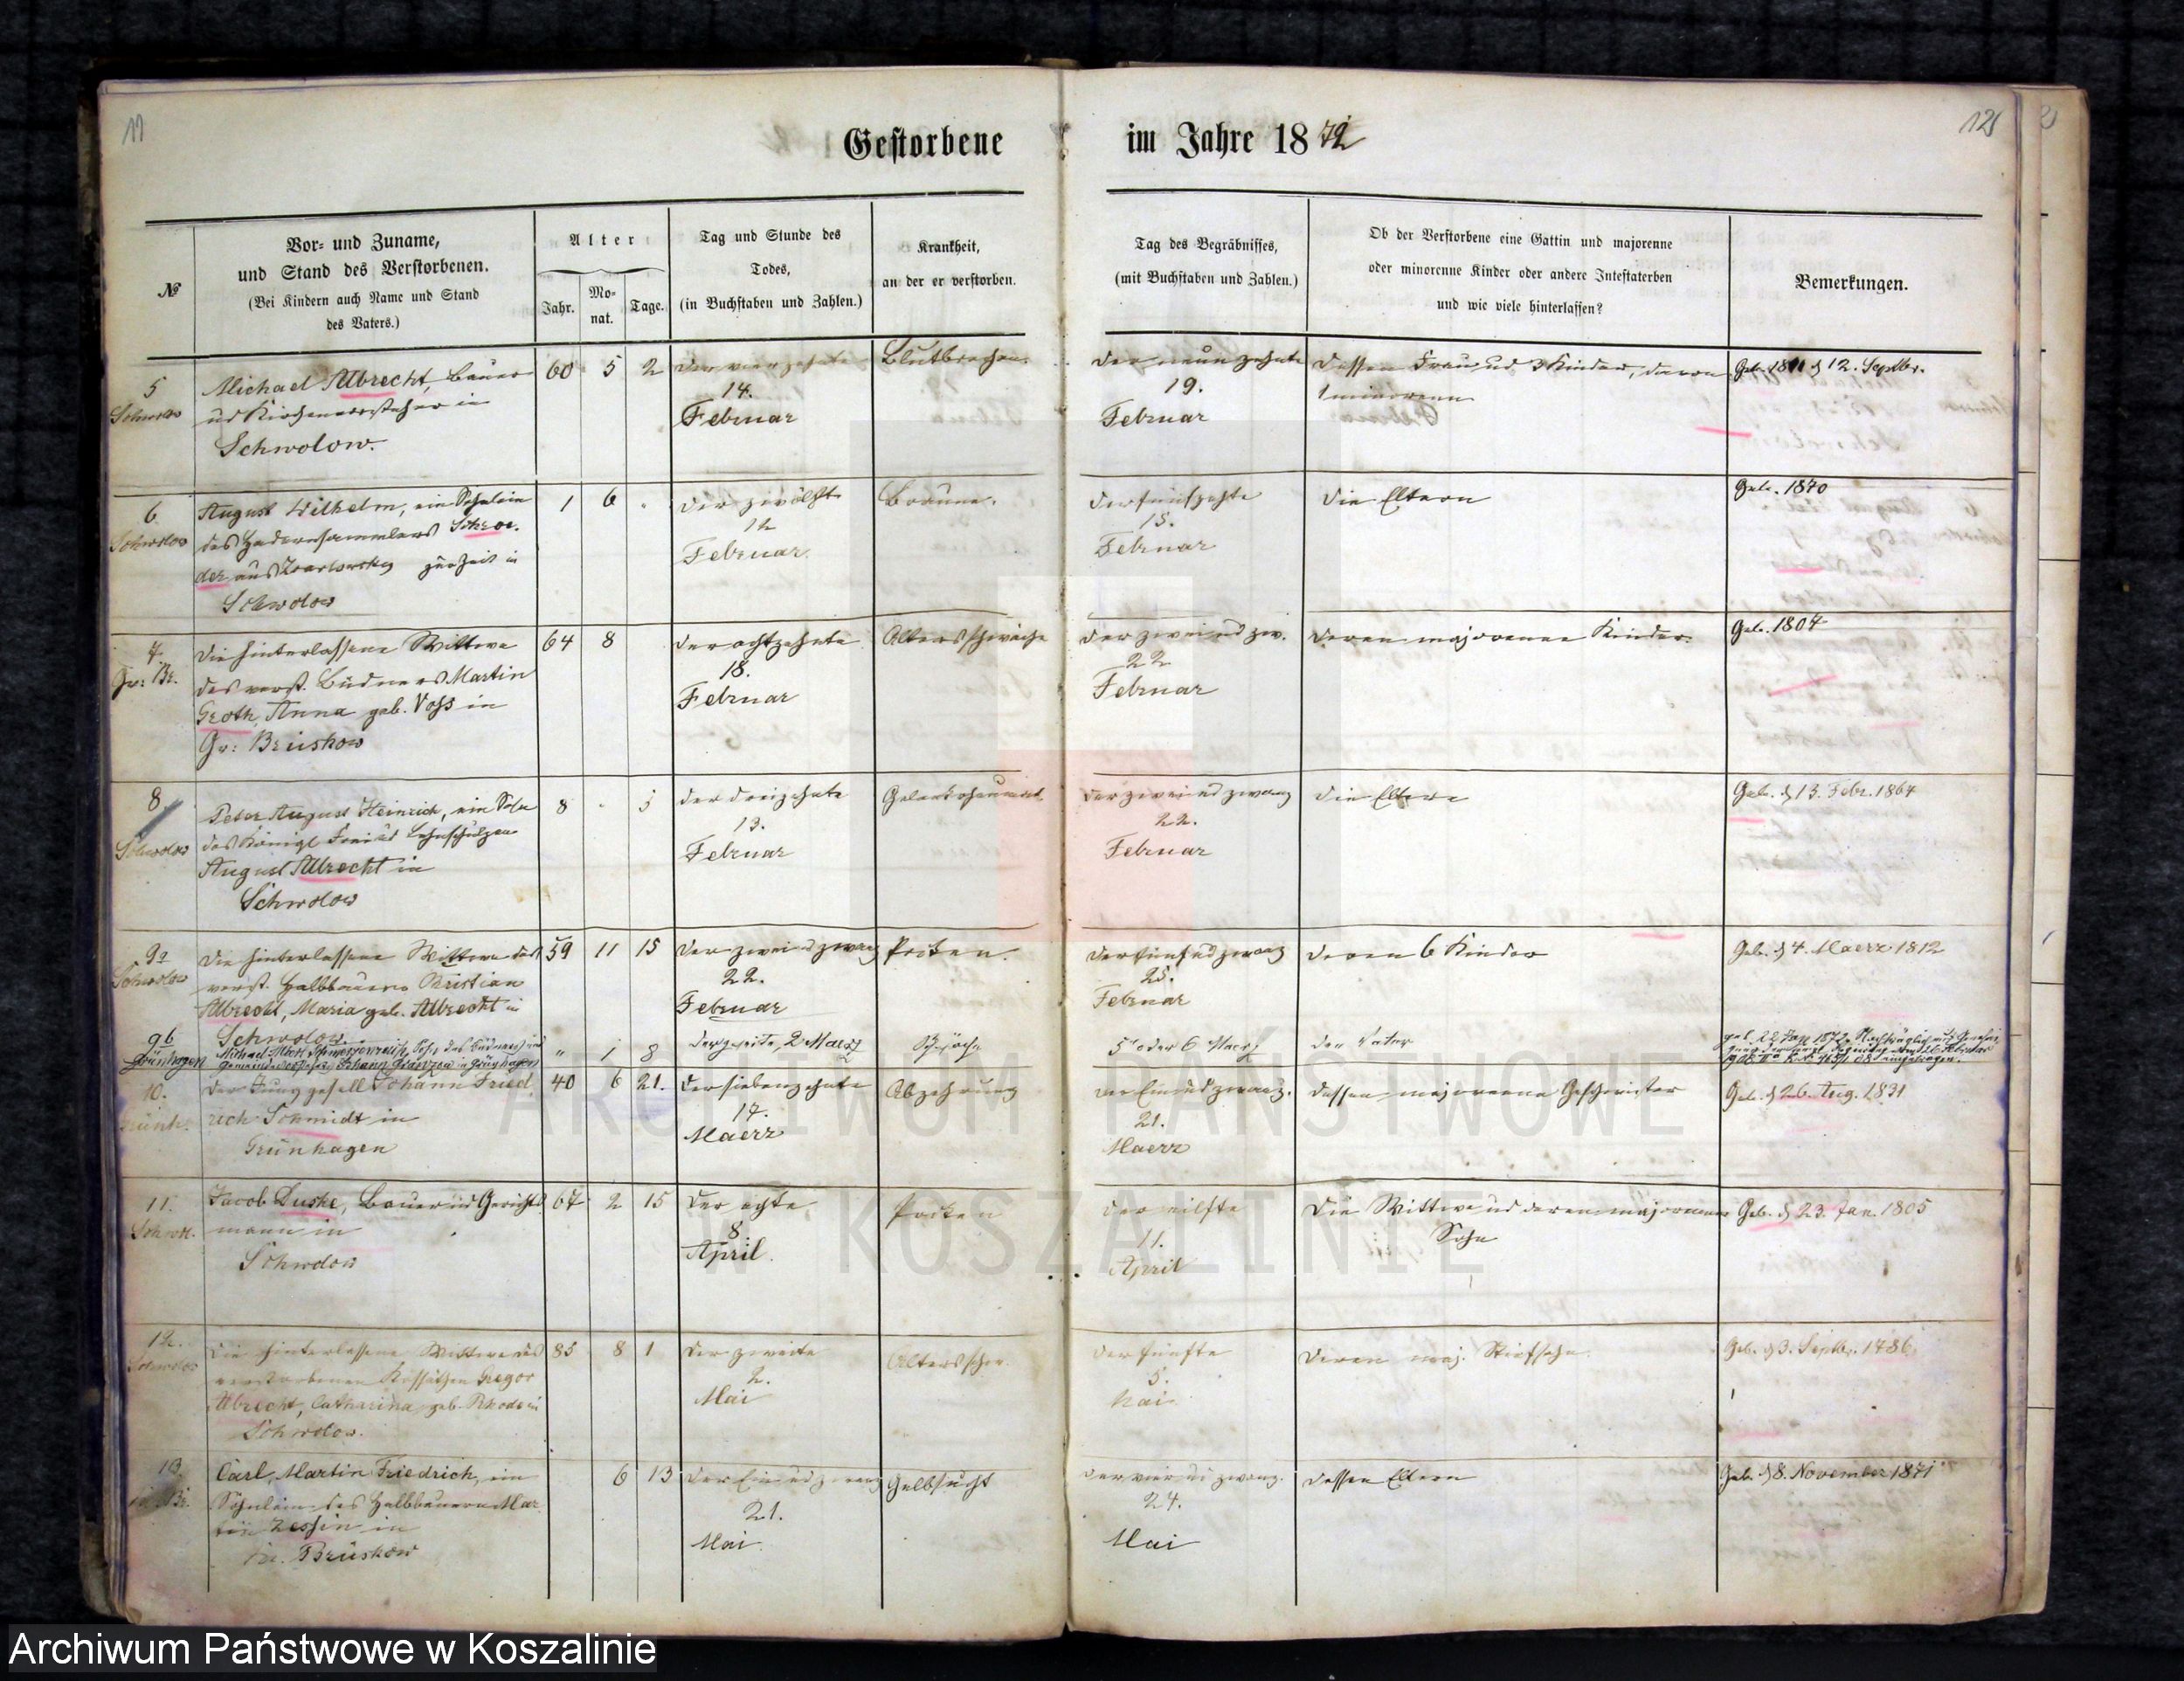 11
Gestorbene
im Jahre 1872
12
№
Vor- und Zuname,
und Stand des Verstorbenen.
(Bei Kindern auch Name und Stand
des Vaters.)
Alter
Jahr.
Mo-
nat.
Tage.
Tag und Stunde des
Todes,
(in Buchstaben und Zahlen.)
Krankheit,
an der er verstorben.
Tag des Begräbnisses,
(mit Buchstaben und Zahlen.)
Ob der Verstorbene eine Gattin und majorenne
oder minorenne Kinder oder andere Intestaterben
und wie viele hinterlassen?
Bemerkungen.
5
Schwolow
Michael Albrecht, Bauer
und Kirchenvorsteher in
Schwolow.
60 5 2
Der vierzehnte
14.
Februar
Blutbrechen.
Der neunzehnte
19.
Februar
Dessen Frau und 3 Kinder, davon
1 minorenn
Geb. d 12. Septbr.
6
Schwolow
August Wilhelm, ein Söhnlein
des Hadernsammlers Schroe-
der aus zur Zeit in
Schwolow
1 6
Der zwölfte
12
Februar
Bräune.
Der fünfzehnte
15.
Februar
Die Eltern
Geb. 1870
7.
Gr: Br.
Die hinterlassene Wittwe
des verst. Büdners Martin
Groth, Anna geb. Voss in
Gr: Brüskow
64 8
Der achtzehnte
18.
Februar
Altersschwäche
Der zweiundzw.
22
Februar
Deren majorenne Kinder.
Geb. 1807
8
Schwolow
Peter August Heinrich, ein Sohn
des Königl Frei und Lehnschulzen
August Albrecht in
Schwolow
8 5
Der dreizehnte
13.
Februar
Der zweiundzwanz
22.
Februar
Die Eltern
Geb. d 13. Febr. 1864
9a
Schwolow
Die hinterlassene Wittwe des
verst. Halbbauern Christian
Albrecht, Maria geb. Albrecht in
Schwolow.
59 11 15
Der zweiundzwanz
22.
Februar
Pocken.
Der fünfundzwanz
25.
Februar
Deren 6 Kinder
Geb. d 4. Maerz 1812
9b
Grünhagen
Michael Albert Sohn des Büdners und
Gemeindevorstehers Johann in Grünhagen
" 1 8
Der zweite, 2 Maerz
Schwäche
5 oder 6 Maerz
Der Vater
10.
Grünh.
Der Junggesell Johann Fried
rich Schmidt in
Grünhagen
40 6 21.
Der siebenzehnte
17.
Maerz
Abzehrung
Der Einundzwanz.
21.
Maerz
Dessen majorenne Geschwister
Geb. d 26. Aug. 1831
11.
Schwol.
Jacob Duske, Bauer und Gerichts-
mann in
Schwolow
67 2 15
Der achte
8.
April.
Pocken
Der eilfte
11.
April
Die Wittwe und deren majorenner
Sohn
Geb. d 23. Jan. 1805
12.
Schwolow
Die hinterlassene Wittwe des
verstorbenen Kossäthen Gregor
Albrecht, Catharina, geb. Rhode in
Schwolow.
85 8 1
Der zweite
2.
Mai
Altersschw.
Der fünfte
5.
Mai
Deren maj. Stiefsohn.
Geb. d 3. Septbr. 1786
13.
Br.
Carl Martin Friedrich, ein
Söhnlein des Halbbauern Mar
tin Zessin in
Br. Brüskow
6 13
Der Einundzwanz
21.
Mai.
Gelbsucht
Der vier und zwanz.
24.
Mai
Dessen Eltern
Geb. d 8. November 1871
ARCHIWUM PAŃSTWOWE
W KOSZALINIE
Archiwum Państwowe w Koszalinie